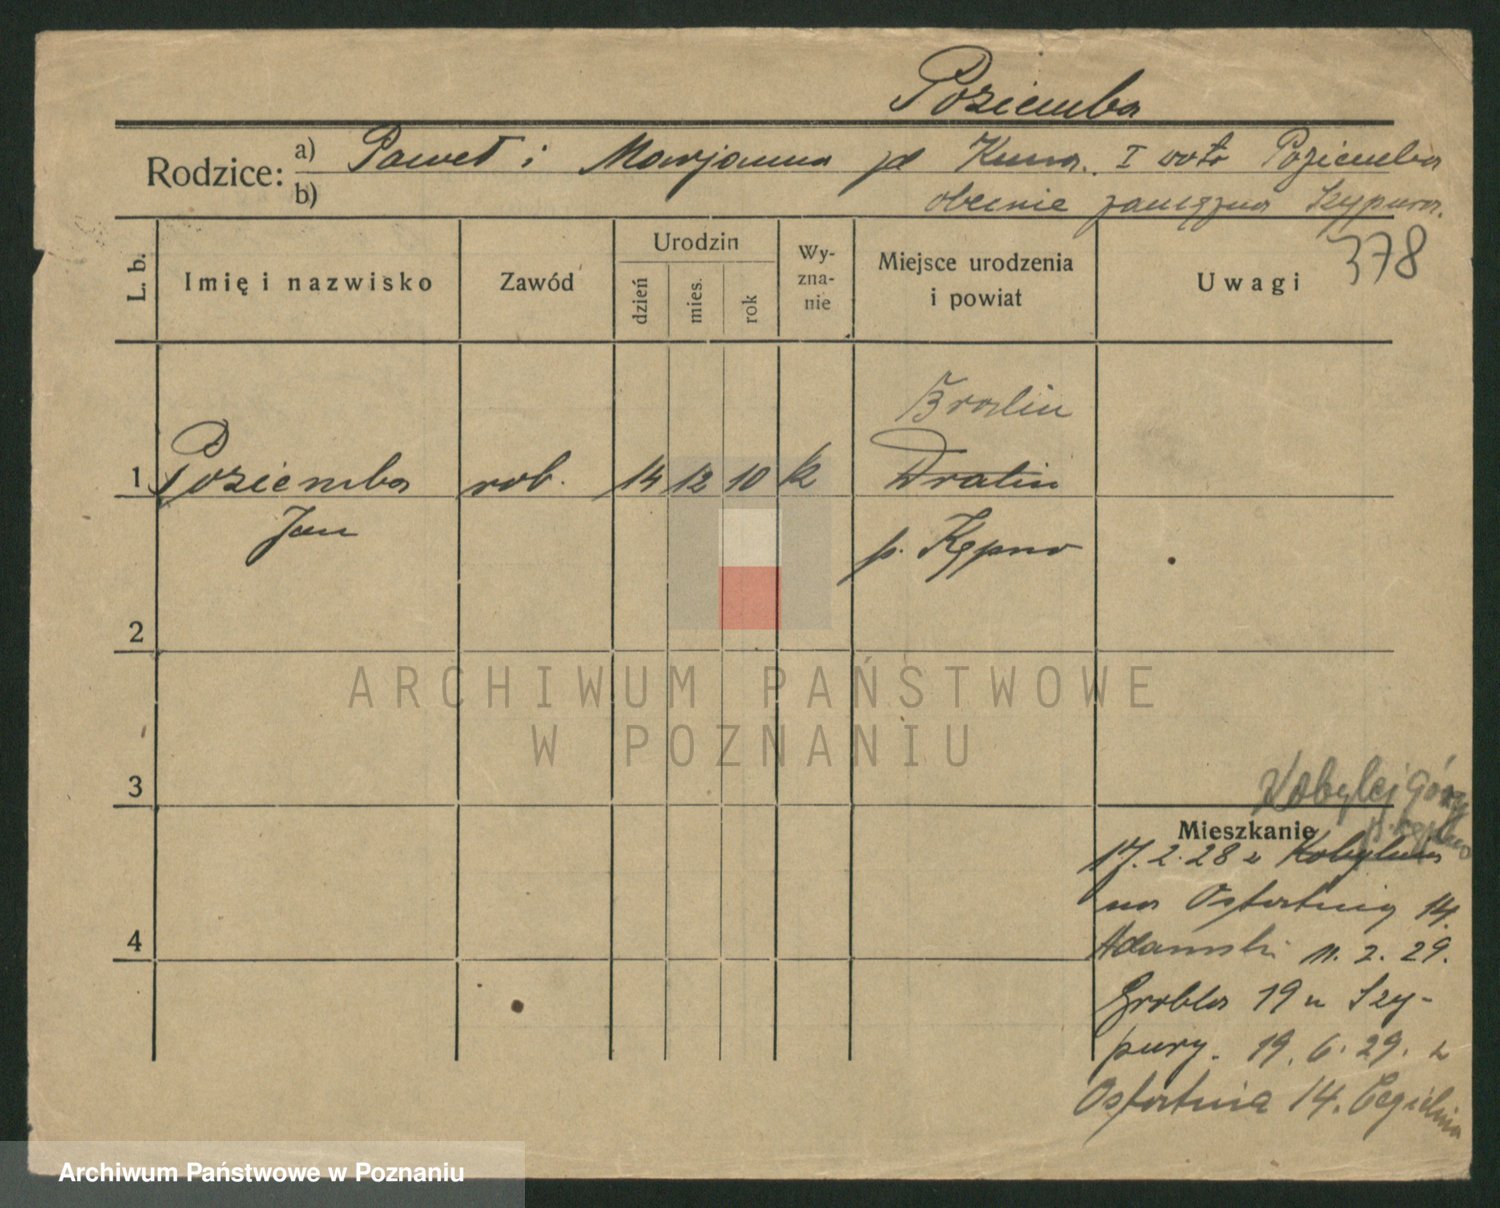 Poziemba
Rodzice:
a) Paweł i Marjanna zd Kuna. I voto Poziemba
b) obecnie zamężna Szypura.
378
L. b.
Imię i nazwisko
Zawód
Urodzin
dzień
mies.
rok
Wy-
zna-
nie
Miejsce urodzenia
i powiat
Uwagi
Bralin
1 Poziemba rob. 14 12 10 k Dralin
Jan p. Kępno
2
ARCHIWUM PAŃSTWOWE
W POZNANIU
3
Kobylej góry
Mieszkanie p. Kępno
17.2.28 z
na Ostatnią 14.
Adamski 11.2.29.
Grobla 19 u Szy-
pury. 19.6.29. z
Ostatnia 14. Cegielnia
4
Archiwum Państwowe w Poznaniu